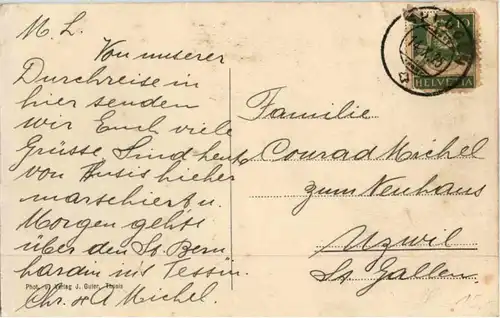 M. L.
Von unserer
Durchreise in
hier senden
wir Euch viele
Grüsse Sind heute
von Tusis hieher
marschiert u.
Morgen gehts
über den St. Bern
hardin ins Tessin.
Chr. & A Michel.
Phot. Verlag J. Guter, Tusis
HELVETIA
Familie
Conrad Michel
zum Neuhaus
Uzwil
St Gallen